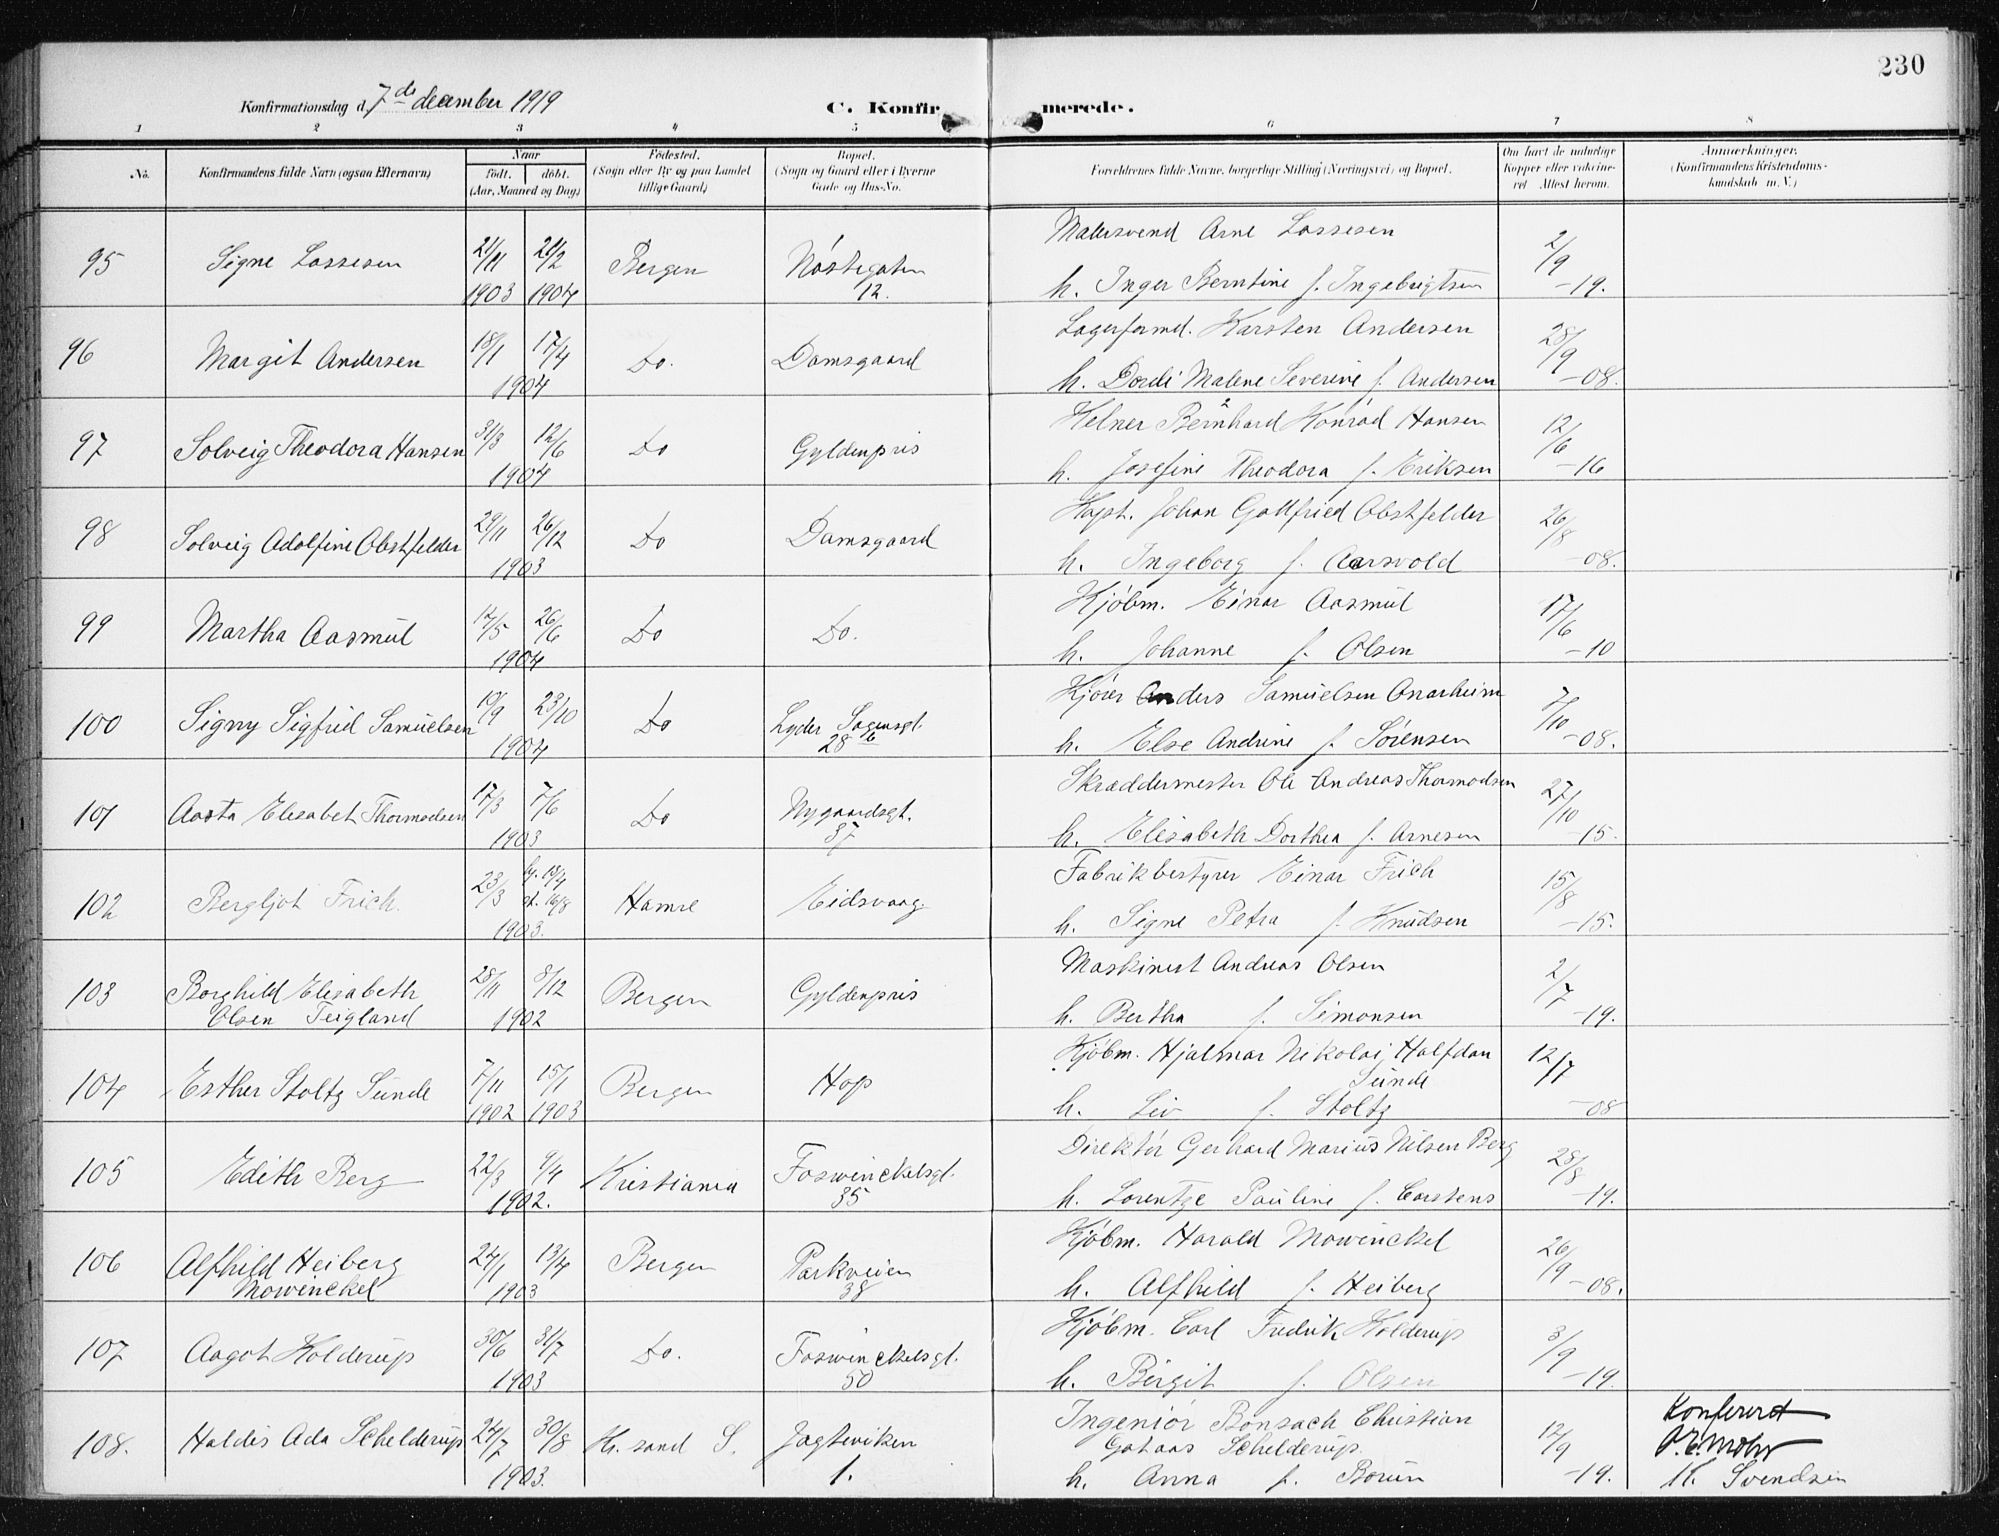 230
Konfirmationsdag d. 7de december 1919
C. Konfirmerede.
1 2 3 4 5 6 7 8
No. Konfirmandens fulde Navn (ogsaa Efternavn) Naar født. døbt. (Aar, Maaned og Dag) Fødested. (Sogn eller By og paa Landet tillige Gaard) Bopæl. (Sogn og Gaard eller i Byerne Gade og Hus-No. Forældrenes fulde Navne, borgerlige Stilling (Næringsvei) og Bopæl. Om havt de naturlige Kopper eller vakcineret Attest herom. Anmærkninger. (Konfirmandens Kristendomskundskab m. V.)
95 Signe Lassesen 21/11 1903 21/2 1904 Bergen Nøstegaten 12. Malersvend Arne Lassesen 2/9
h. Inger Berntine f. Ingebrigtsen -19.
96 Margit Andersen 18/1 17/4 1904 Do. Damsgaard Lagerformd. Karsten Andersen 28/9
h. Dordi Malene Severine f. Andersen -08.
97 Solveig Theodora Hansen 31/3 12/6 1904 Do Gyldenpris Helner Bernhard Konrad Hansen 12/6
h. Josefine Theodora f. Eriksen -16
98 Solveig Adolfine Obstfelder 29/11 26/12 1903 Do Damsgaard Kapt. Johan Gottfried Obstfelder 26/8
h. Ingeborg f. Aarsvold -08.
99 Martha Aasmul 17/5 26/6 1904 Do Do. Kjøbm. Einar Aasmul 17/6
h. Johanne f. Olsen -10
100 Signy Sigfrid Samuelsen 10/9 23/10 1904 Do Lyder Sagensgt. 28 b Kjører Anders Samuelsen Anarheim 7/10
h. Else Andrine f. Sørensen -08.
101 Aasta Elisabet Thormodsen 17/3 7/6 1903 Do Nygaardsgt. 37 Skræddermester Ole Andreas Thormodsen 27/10
h. Elisabeth Dorthea f. Arnesen -15.
102 Bergljot Frich. 23/3 16/8 1903. Hamre Eidsvaag. Fabrikbestyrer Einar Frich 15/8
h. Signe Petra f. Knudsen -15.
103 Borghild Elisabeth 28/11 8/12 1902 Bergen Gyldenpris Maskinist Andreas Olsen 2/7
Olsen Teigland h. Bertha f. Simonsen -19.
104 Esther Stoltz Sunde 7/11 1902 15/1 1903 Bergen Hop Kjøbm. Hjalmar Nikolai Halfdan 12/7
Sunde
h. Liv f. Stoltz -08
105 Edith Berg 22/3 9/4 1902. Kristiania Foswinckelsgt. 35 Direktør Gerhard Marius Nilsen Berg 28/8
h. Lorentze Pauline f. Carstens -19.
106 Alfhild Heiberg 24/1 13/4 1903 Bergen Parkveien 38 Kjøbm. Harald Mowinckel 26/9
Mowinckel h. Alfhild f. Heiberg -08.
107 Aagot Holderup 30/6 31/7 1903 Do. Foswinckelsgt. 50 Kjøbm. Carl Fredrik Holderup 3/9
h. Birgit f. Olsen -19.
108. Haldis Ada Schelderup 24/7 30/8 1903. Kr. sand S. Jægteviken 1. Ingeniør Bonsach Christian 12/9 Konfererd
Schelderup.
h. Anna f. Borun -19. K. Svendsen